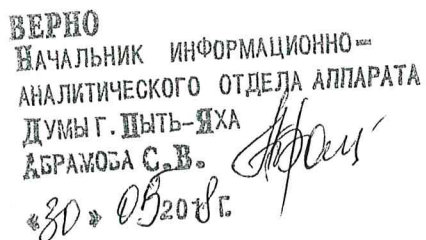 ВЕРНО
НАЧАЛЬНИК ИНФОРМАЦИОННО-
АНАЛИТИЧЕСКОГО ОТДЕЛА АППАРАТА
ДУМЫ Г. ПЫТЬ-ЯХА
АБРАМОВА С.В.
«30» 05 2018 Г.